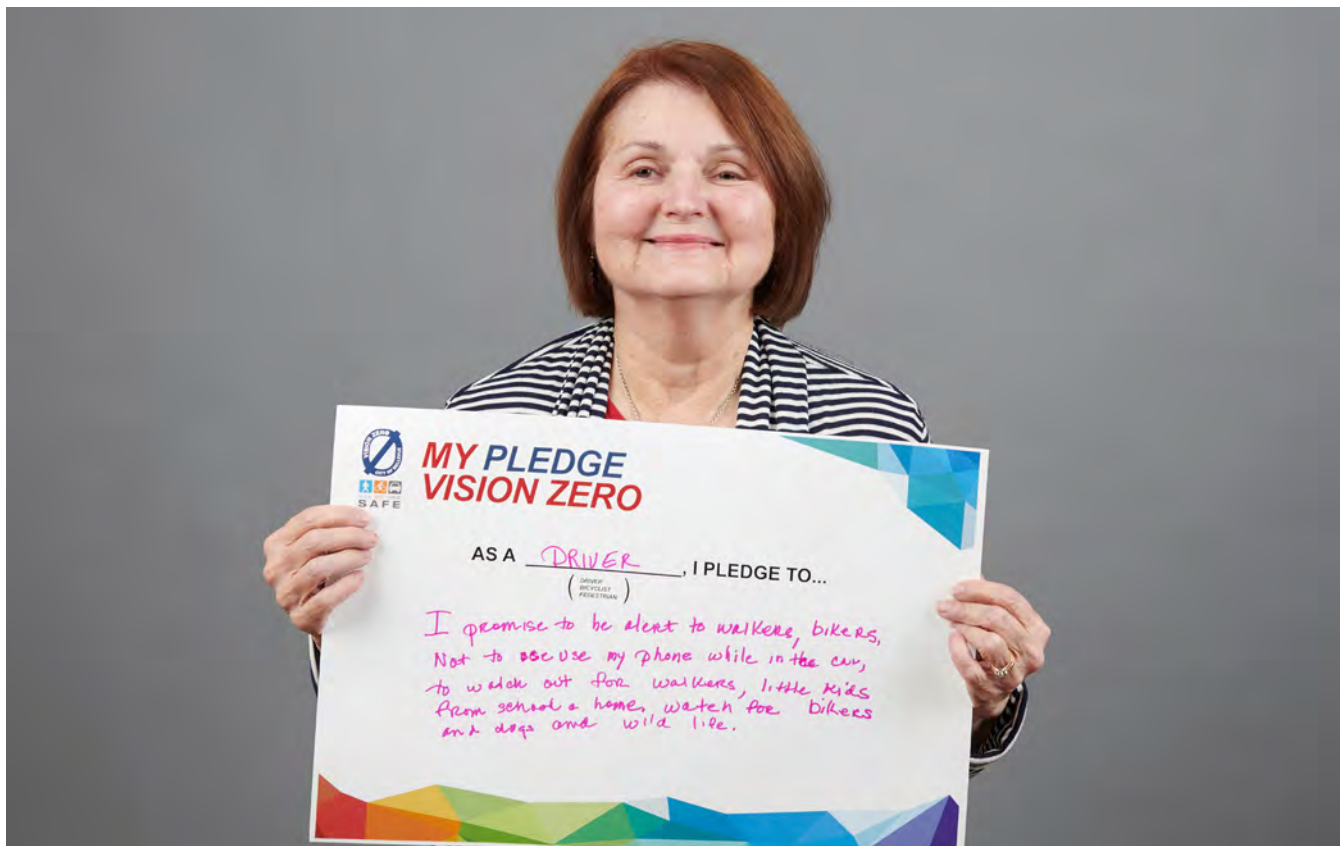 VISION ZERO
SAFE
MY PLEDGE
VISION ZERO
AS A DRIVER, I PLEDGE TO...
(DRIVER
BICYCLIST
PEDESTRIAN)
I promise to be alert to walkers, bikers,
Not to use my phone while in the car,
to watch out for walkers, little kids
from school & home, watch for bikers
and dogs and wild life.